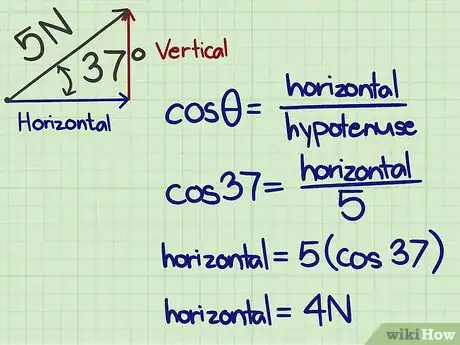 5N
37°
Vertical
Horizontal
cosθ = horizontal / hypotenuse
cos37 = horizontal / 5
horizontal = 5(cos 37)
horizontal = 4N
wikiHow